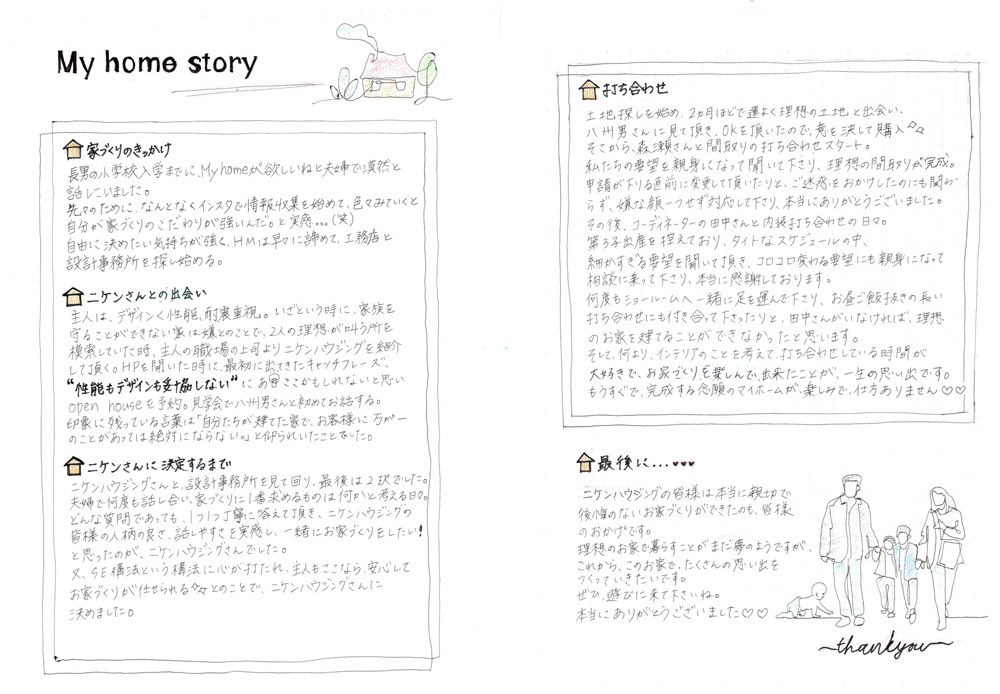 My home story
家づくりのきっかけ
長男の小学校入学までに、My homeが欲しいねと夫婦で漠然と
話していました。
先々のために、なんとなくインスタで情報収集を始めて、色々みていくと
自分が家づくりのこだわりが強いんだ。と実感…(笑)
自由に決めたい気持ちが強く、HMは早々に諦めて、工務店と
設計事務所を探し始める。
ニケンさんとの出会い
主人は、デザインく性能、耐震重視。いざという時に、家族を
守ることができない家は嫌とのことで、2人の理想が叶う所を
模索していた時、主人の職場の上司よりニケンハウジングを紹介
して頂く。HPを開いた時に、最初に出てきたキャッチフレーズ、
“性能もデザインも妥協しない”に あ、ここかもしれないと思い
open houseを予約。見学会で八州男さんと初めてお話する。
印象に残っている言葉は「自分たちが建てた家で、お客様に万が一
のことがあっては絶対にならない。」と仰られいたことでした。
ニケンさんに決定するまで
ニケンハウジングさんと、設計事務所を見て回り、最後は2択でした。
夫婦で何度も話し合い、家づくりに1番求めるものは何かと考える日々。
どんな質問であっても、1つ1つ丁寧に答えて頂き、ニケンハウジングの
皆様の人柄の良さ、話しやすさを実感し、一緒にお家づくりをしたい!
と思ったのが、ニケンハウジングさんでした。
又、SE構法という構法に心が打たれ、主人もここなら、安心して
お家づくりが任せられる✨とのことで、ニケンハウジングさんに
決めました。
打ち合わせ
土地探しを始め、2ヵ月ほどで運よく理想の土地と出会い、
八州男さんに見て頂き、OKを頂いたので、意を決して購入✨
そこから、森瀬さんと間取りの打ち合わせスタート。
私たちの要望を親身になって聞いて下さり、理想の間取りが完成。
申請が下りる直前に変更して頂いたりと、ご迷惑をおかけしたのにも関わ
らず、嫌な顔一つせず対応して下り、本当にありがとうございました。
その後、コーディネーターの田中さんと内装打ち合わせの日々。
第3子出産を控えており、タイトなスケジュールの中、
細かすぎる要望を聞いて頂き、コロコロ変わる要望にも親身になって
相談に乗って下さり、本当に感謝しております。
何度もショールームへ一緒に足を運んで下り、お昼ご飯抜きの長い
打ち合わせにも付き合って下さったりと、田中さんがいなければ、理想
のお家を建てることができなかったと思います。
そして、何より、インテリアのことを考えて、打ち合わせしている時間が
大好きで、お家づくりを楽しんで、出来たことが、一生の思い出です。
もうすぐで、完成する念願のマイホームが、楽しみで、仕方ありません♡♡
最後に...♥♥♥
ニケンハウジングの皆様は本当に親切で
後悔のないお家づくりができたのも、皆様
のおかげです。
理想のお家で暮らすことがまだ夢のようですが、
これから、このお家で、たくさんの思い出を
つくっていきたいです。
ぜひ、遊びに来て下さいね。
本当にありがとうございました♡♡
thankyou